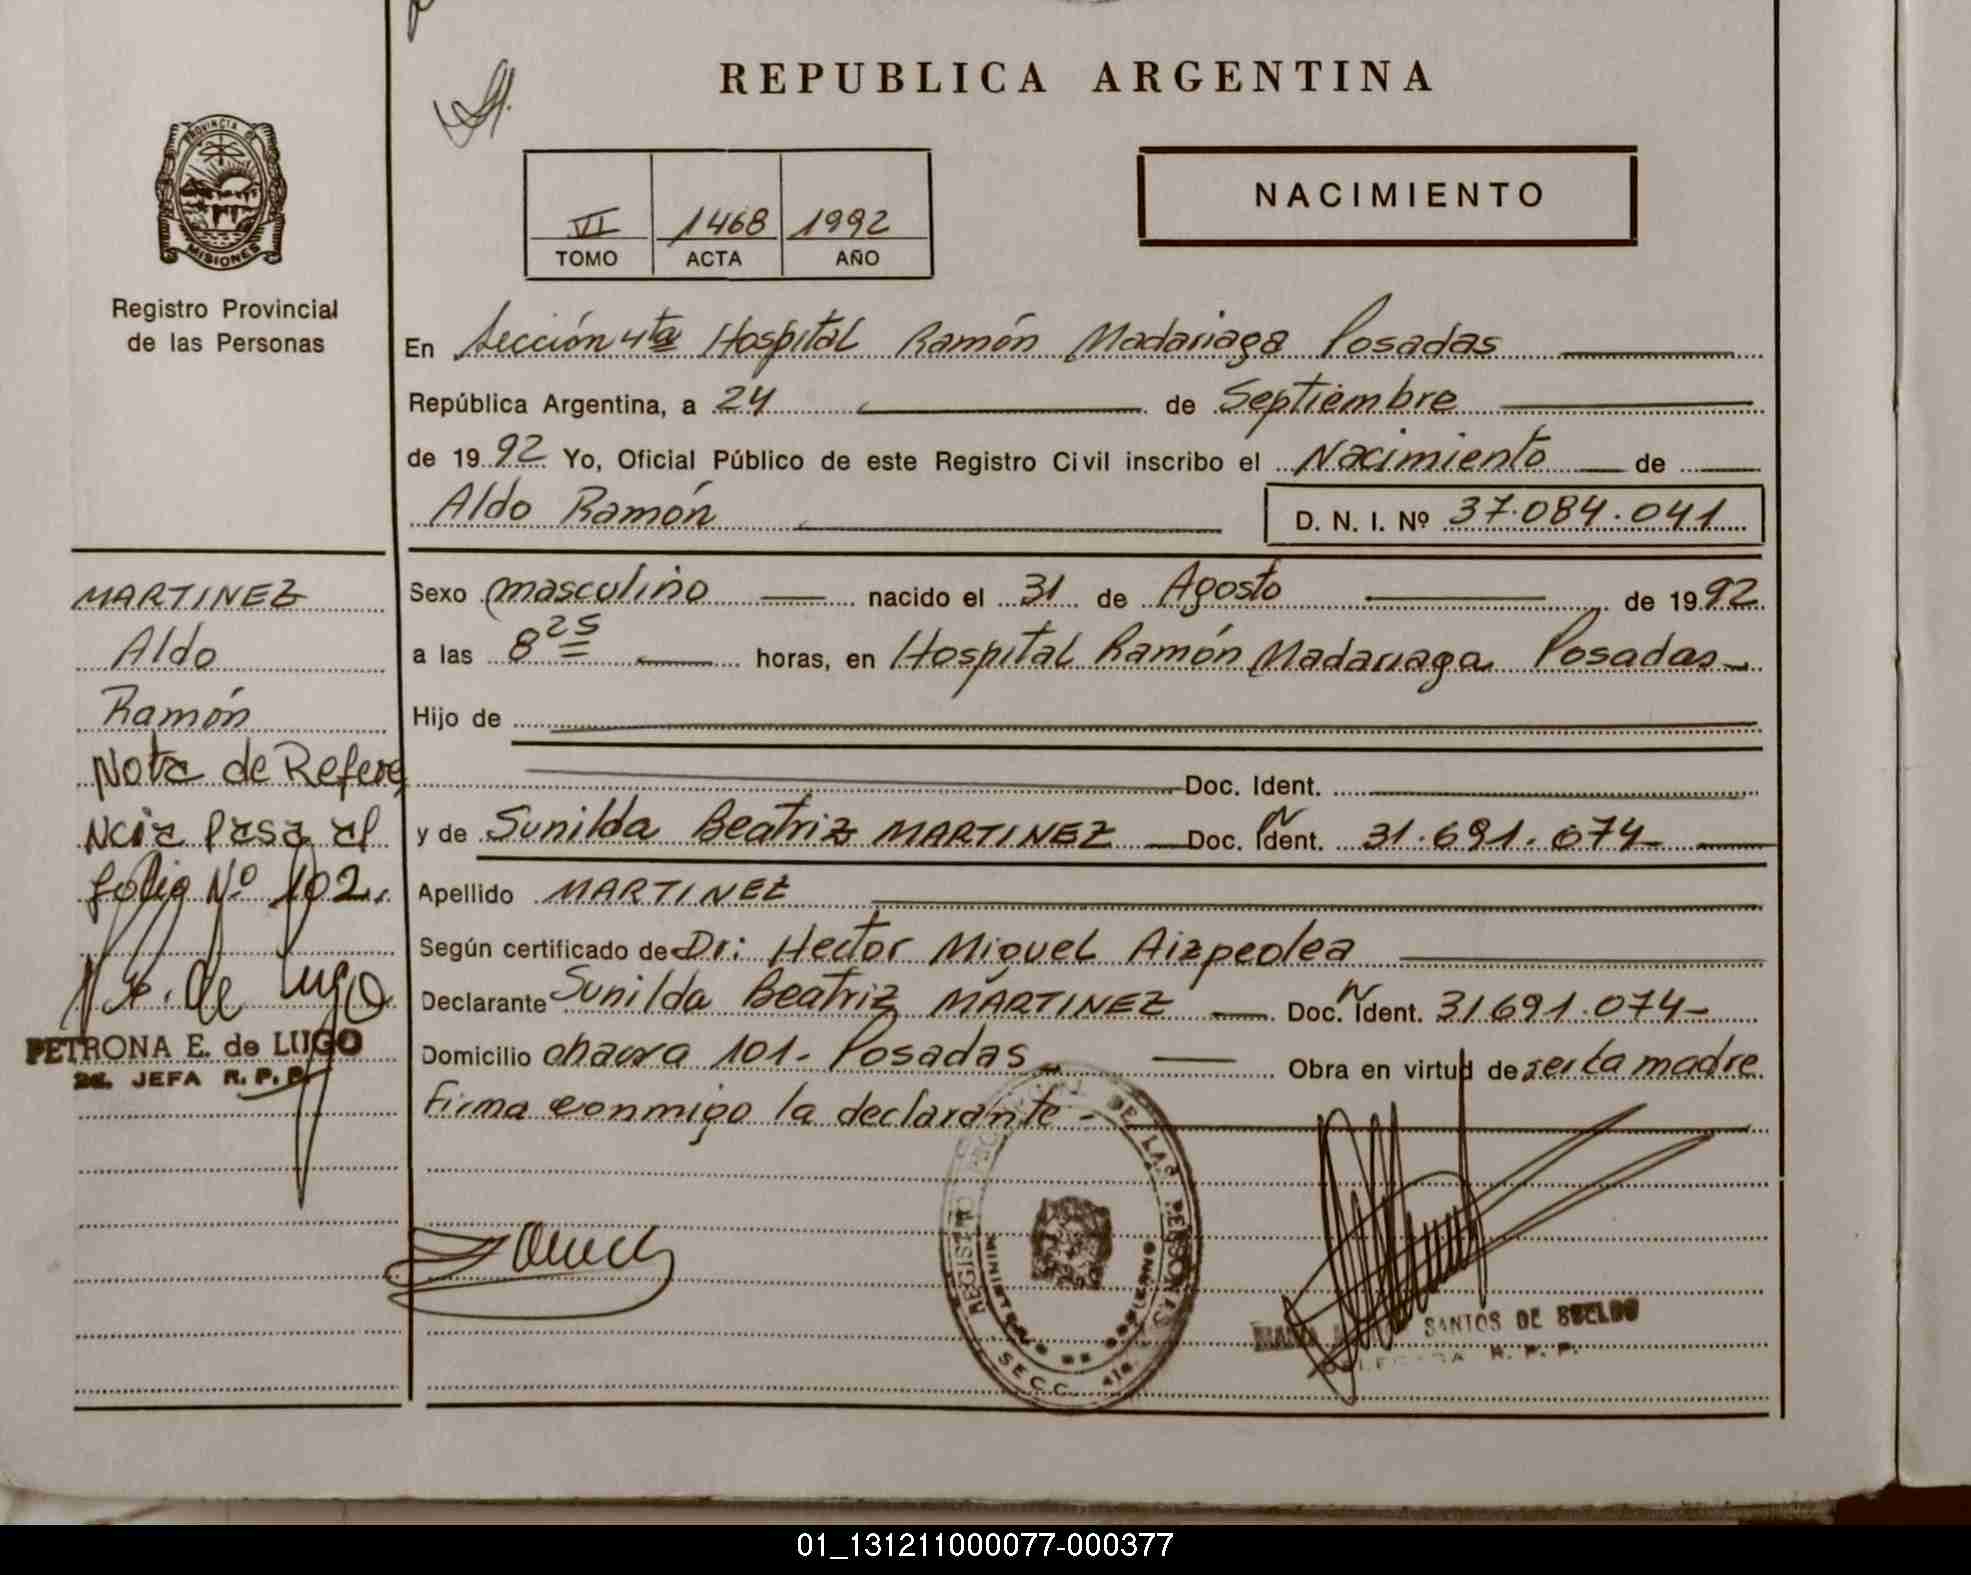 REPUBLICA ARGENTINA
PROVINCIA DE
MISIONES
Registro Provincial
de las Personas
NACIMIENTO
VI 1468 1992
TOMO ACTA AÑO
En Sección 4ta Hospital Ramón Madariaga Posadas
República Argentina, a 24 de Septiembre
de 1992 Yo, Oficial Público de este Registro Civil inscribo el Nacimiento de
Aldo Ramón D. N. I. Nº 37.084.041
Sexo masculino nacido el 31 de Agosto de 1992
a las 8 25 horas, en Hospital Ramón Madariaga Posadas
Hijo de
Doc. Ident.
y de Sunilda Beatriz MARTINEZ Doc. N Ident. 31.691.074
Apellido MARTINEZ
Según certificado de Dr: Hector Miguel Aizpeolea
Declarante Sunilda Beatriz MARTINEZ Doc. N Ident. 31691.074
Domicilio chacra 101- Posadas Obra en virtud de ser la madre
Firma conmigo la declarante -
MARTINEZ
Aldo
Ramón
Nota de Refere
ncia Pasa al
folio Nº 102.
de Lugo
PETRONA E. de LUGO
JEFA R.P.P.
REGISTRO PROVINCIAL DE LAS PERSONAS
SECC. 4ta
SANTOS DE SUELDO
DELEGADA R. P. P.
01_131211000077-000377